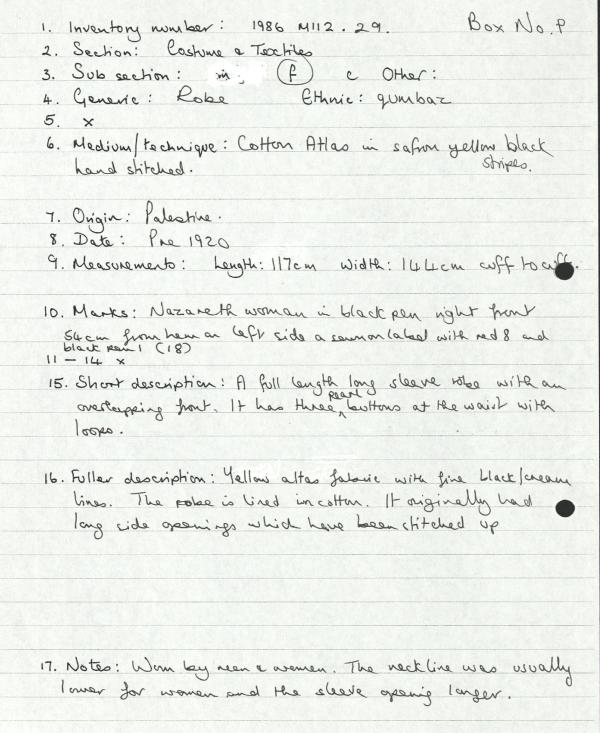 1. Inventory number: 1986 M112.29. Box No. P
2. Section: Costume & Textiles
3. Sub section: m f c Other:
4. Generic: Robe Ethnic: qumbaz
5. x
6. Medium/technique: Cotton Atlas in safron yellow black
stripes.
hand stitched.
7. Origin: Palestine.
8. Date: Pre 1920
9. Measurements: Length: 117cm Width: 144cm cuff to cuff.
10. Marks: Nazareth woman in black pen right front
54cm from hem on left side a sewn on label with red 8 and
black pen 1 (18)
11 – 14 x
15. Short description: A full length long sleeve robe with an
overlapping front. It has three pearl buttons at the waist with
loops.
16. Fuller description: Yellow altas fabric with fine black/cream
lines. The robe is lined in cotton. It originally had
long side openings which have been stitched up
17. Notes: Worn by men & women. The neckline was usually
lower for women and the sleeve opening larger.